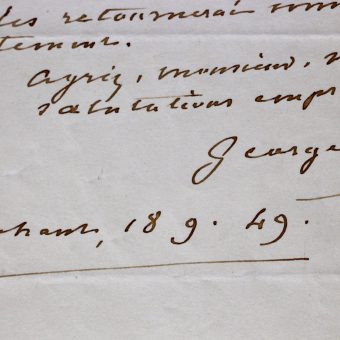 les retournerai imm
tement.
agriz, monsieur, m
salutations empr
George
ohant, 18 9. 49.